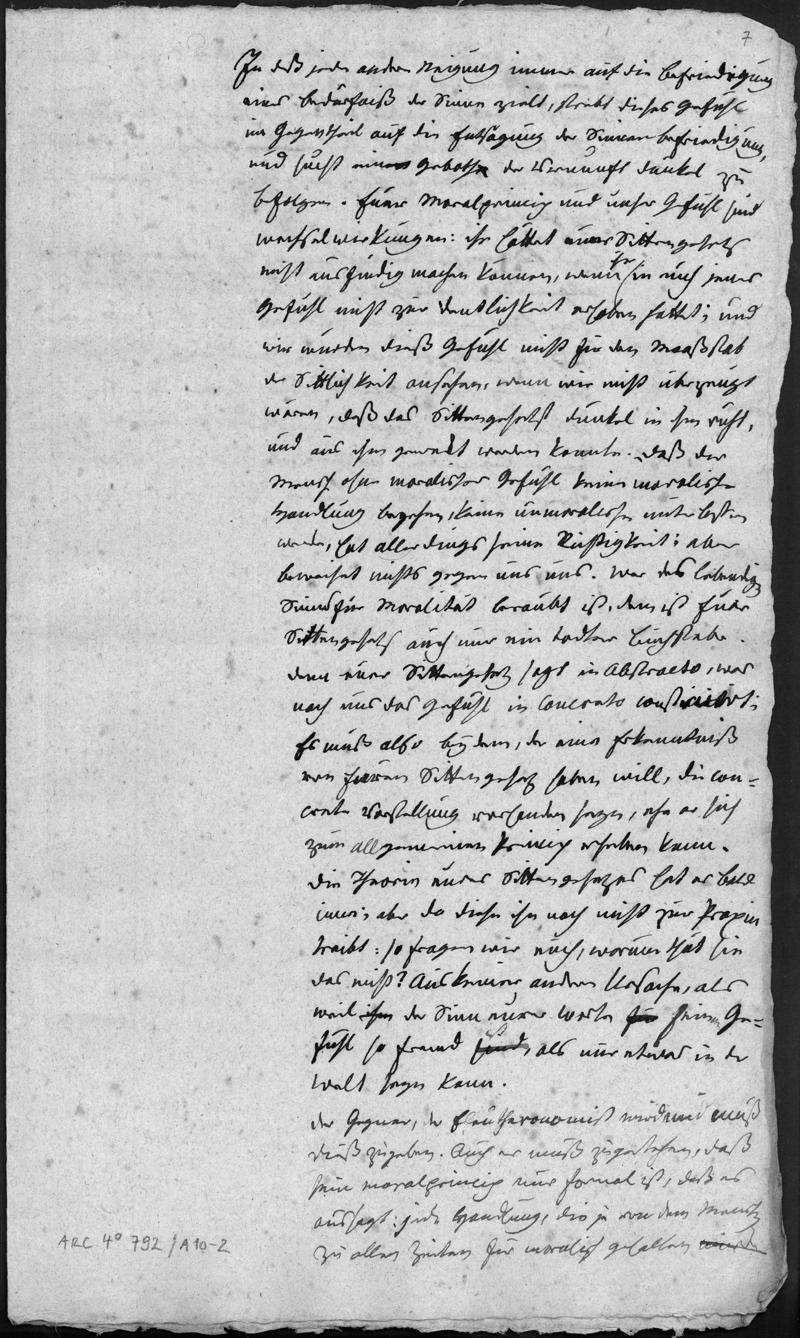 7
In deß jede andere Neigung immer auf die Befriedigung
eines Bedürfniß der Sinne zielt, strebt dieses Gefühl
im Gegentheil auf die Entsagung der Sinnenbefriedigung,
und sucht einem Geboth der Vernunft dunkel zu
befolgen. Euer Moralprincip und unser Gefühl sind
wechselwirkungen: ihr hättet euer Sittengesetz
nicht ausfündig machen können, wenn ihr euch jenes
Gefühl nicht zur Deutlichkeit erhoben hättet; und
wir würden dieß Gefühl nicht für den Maaßstab
der Sittlichkeit ansehen, wenn wir nicht überzeugt
wären, daß das Sittengesetz dunkel in ihm ruht,
und aus ihm geweckt werden konnte. Daß der
Mensch ohne moralisches Gefühl keine moralische
Handlung begehen, keine unmoralische unterlassen
werde, hat allerdings seine Richtigkeit: aber
beweiset nichts gegen uns. Wer des lebendigen
Sinns für Moralität beraubt ist, dem ist Euer
Sittengesetz auch nur ein todter Buchstabe.
denn euer Sittengesetz sagt in Abstracto, was
nach uns das Gefühl in Concreto
Es muß also bey dem, der eine Erkenntniß
von Eurem Sittengesetz haben will, die con=
crete Vorstellung vorhanden seyn, ehe er sich
zum allgemeinen Princip erheben kann.
Die Theorie eures Sittengesetzes hat er bald
inne; aber da diese ihn noch nicht zur Praxis
treibt: so fragen wir euch, warum thut sie
das nicht? Aus keiner andern Ursache, als
weil der Sinn eurer Worte seinem Ge=
fühl so fremd als nur etwas in der
Welt seyn kann.
Der Gegner, der Eleutheronomist wird und muß
dieß zugeben. Auch er muß zugestehen, daß
sein Moralprincip nur formal ist, daß es
aussagt: jede Handlung, die je von dem Mensch
zu allen Zeiten für moralisch gehalten
ARC 4° 792 / A10-2